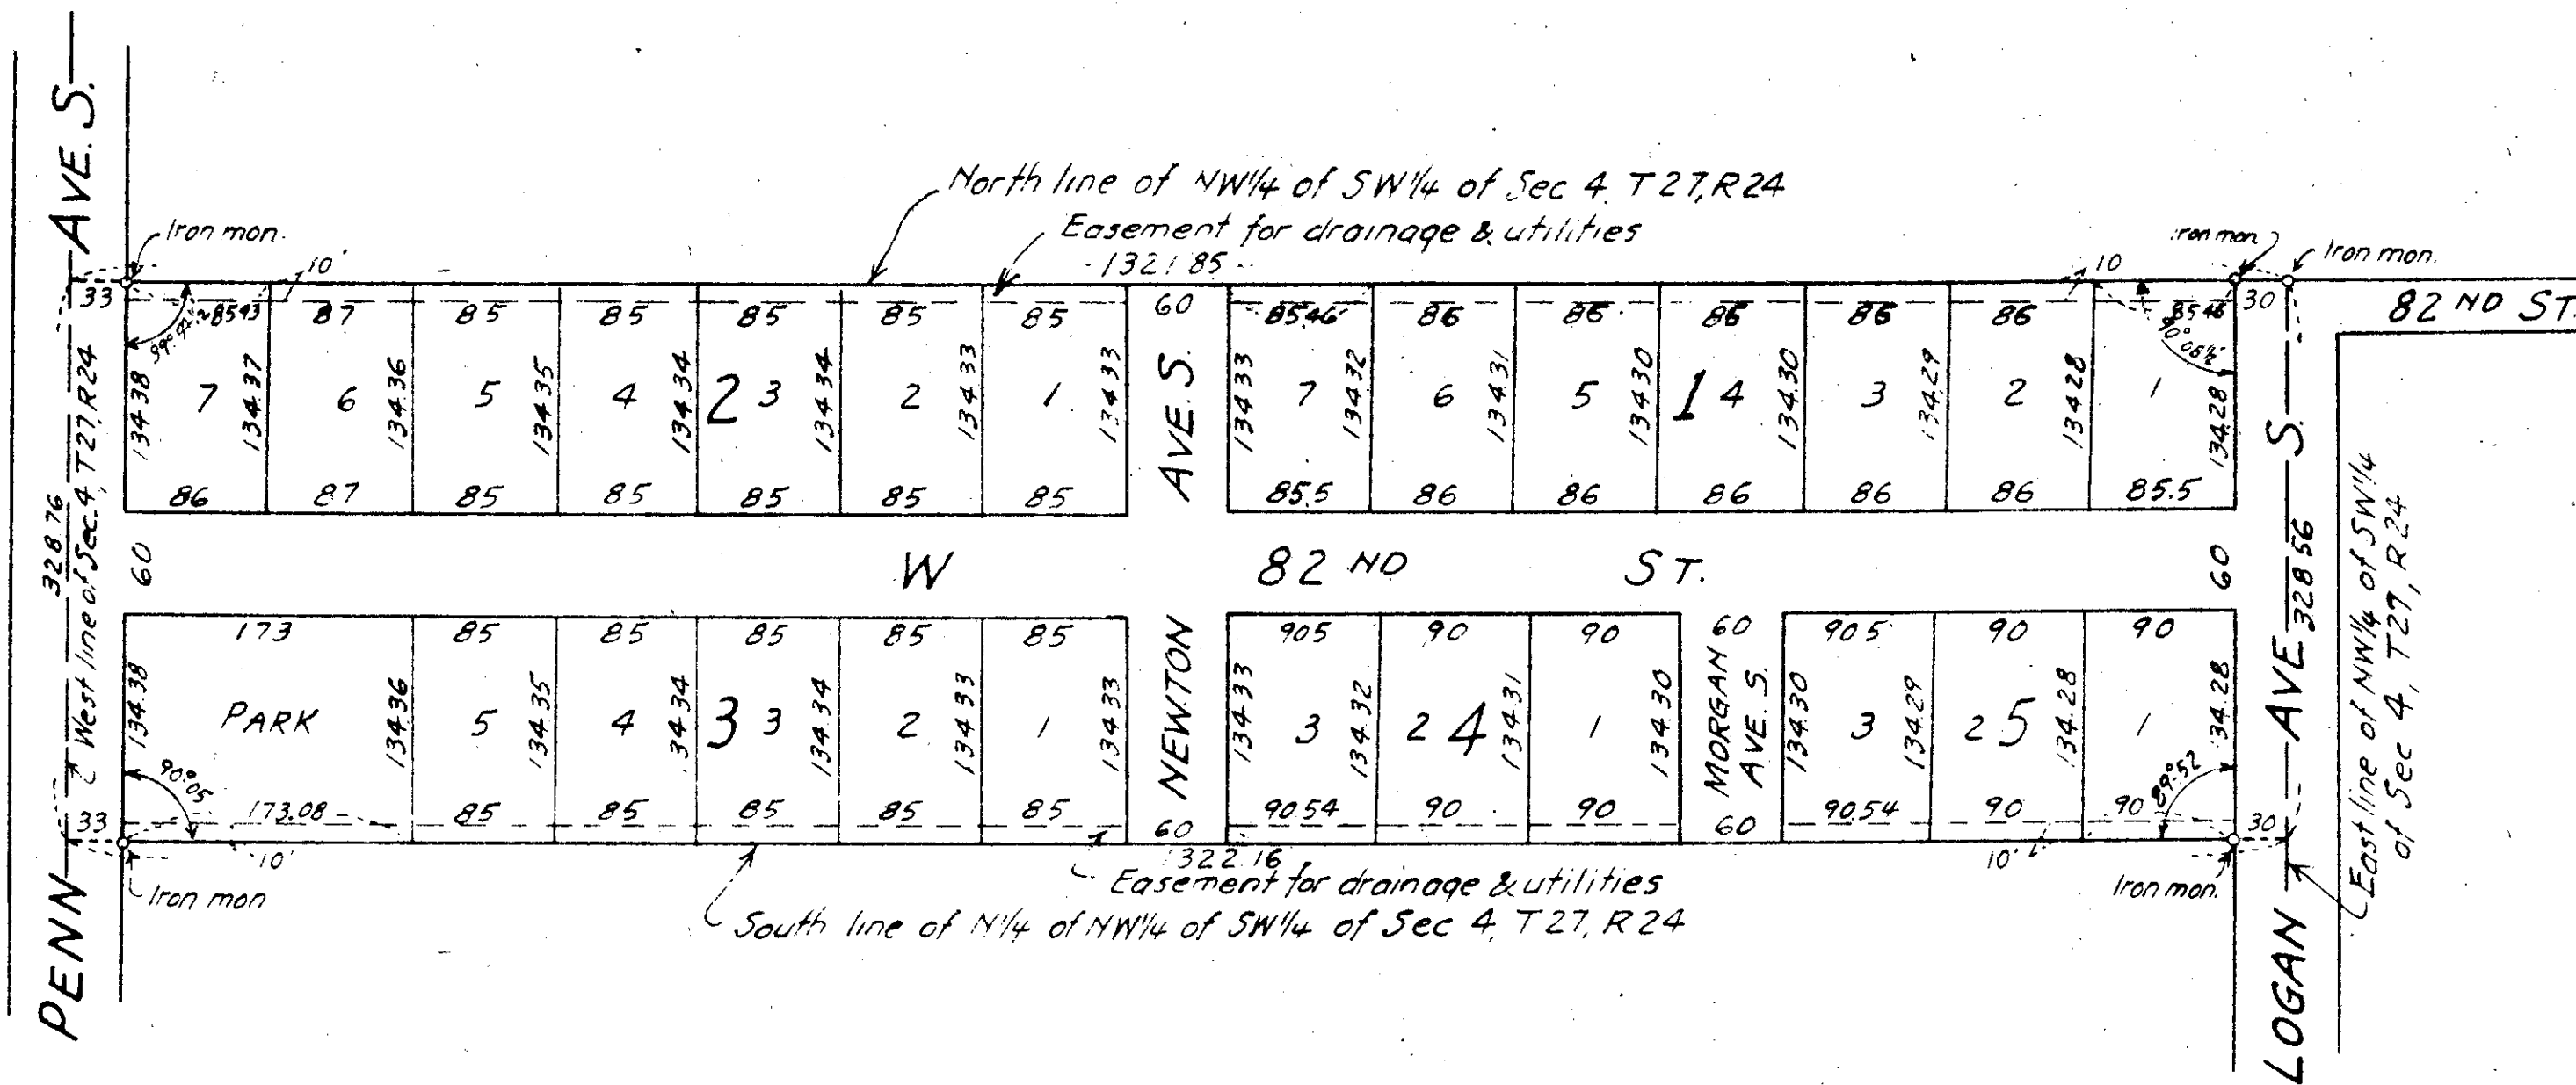 PENN AVE. S.
North line of NW 1/4 of SW 1/4 of Sec 4. T27, R24
Easement for drainage & utilities
1321.85
Iron mon.
Iron mon.
Iron mon.
33 10' 10 30
82 ND ST.
85.93 87 85 85 85 85 85 60 85.46 86 86 86 86 86 85.46
90° 08½'
328.76
West line of Sec. 4, T27, R24
134.38 7 134.37 6 134.36 5 134.35 4 134.34 2 3 134.34 2 134.33 1 134.33
AVE. S.
134.33 7 134.32 6 134.31 5 134.30 1 4 134.30 3 134.29 2 134.28 1 134.28
86 87 85 85 85 85 85 85.5 86 86 86 86 86 85.5
60 W 82 ND ST. 60
LOGAN AVE. S.
328.56
East line of NW 1/4 of SW 1/4
of Sec 4, T27, R24
173 85 85 85 85 85 90.5 90 90 60 90.5 90 90
134.38 PARK 134.36 5 134.35 4 134.34 3 3 134.34 2 134.33 1 134.33
NEWTON
134.33 3 134.32 2 4 134.31 1 134.30
MORGAN
AVE. S.
134.30 3 134.29 2 5 134.28 1 134.28
90°05 89°52
33 173.08 85 85 85 85 85 60 90.54 90 90 60 90.54 90 90 30
10' 1322.16 10'
Iron mon
Easement for drainage & utilities
Iron mon.
South line of N 1/4 of NW 1/4 of SW 1/4 of Sec 4, T27, R24